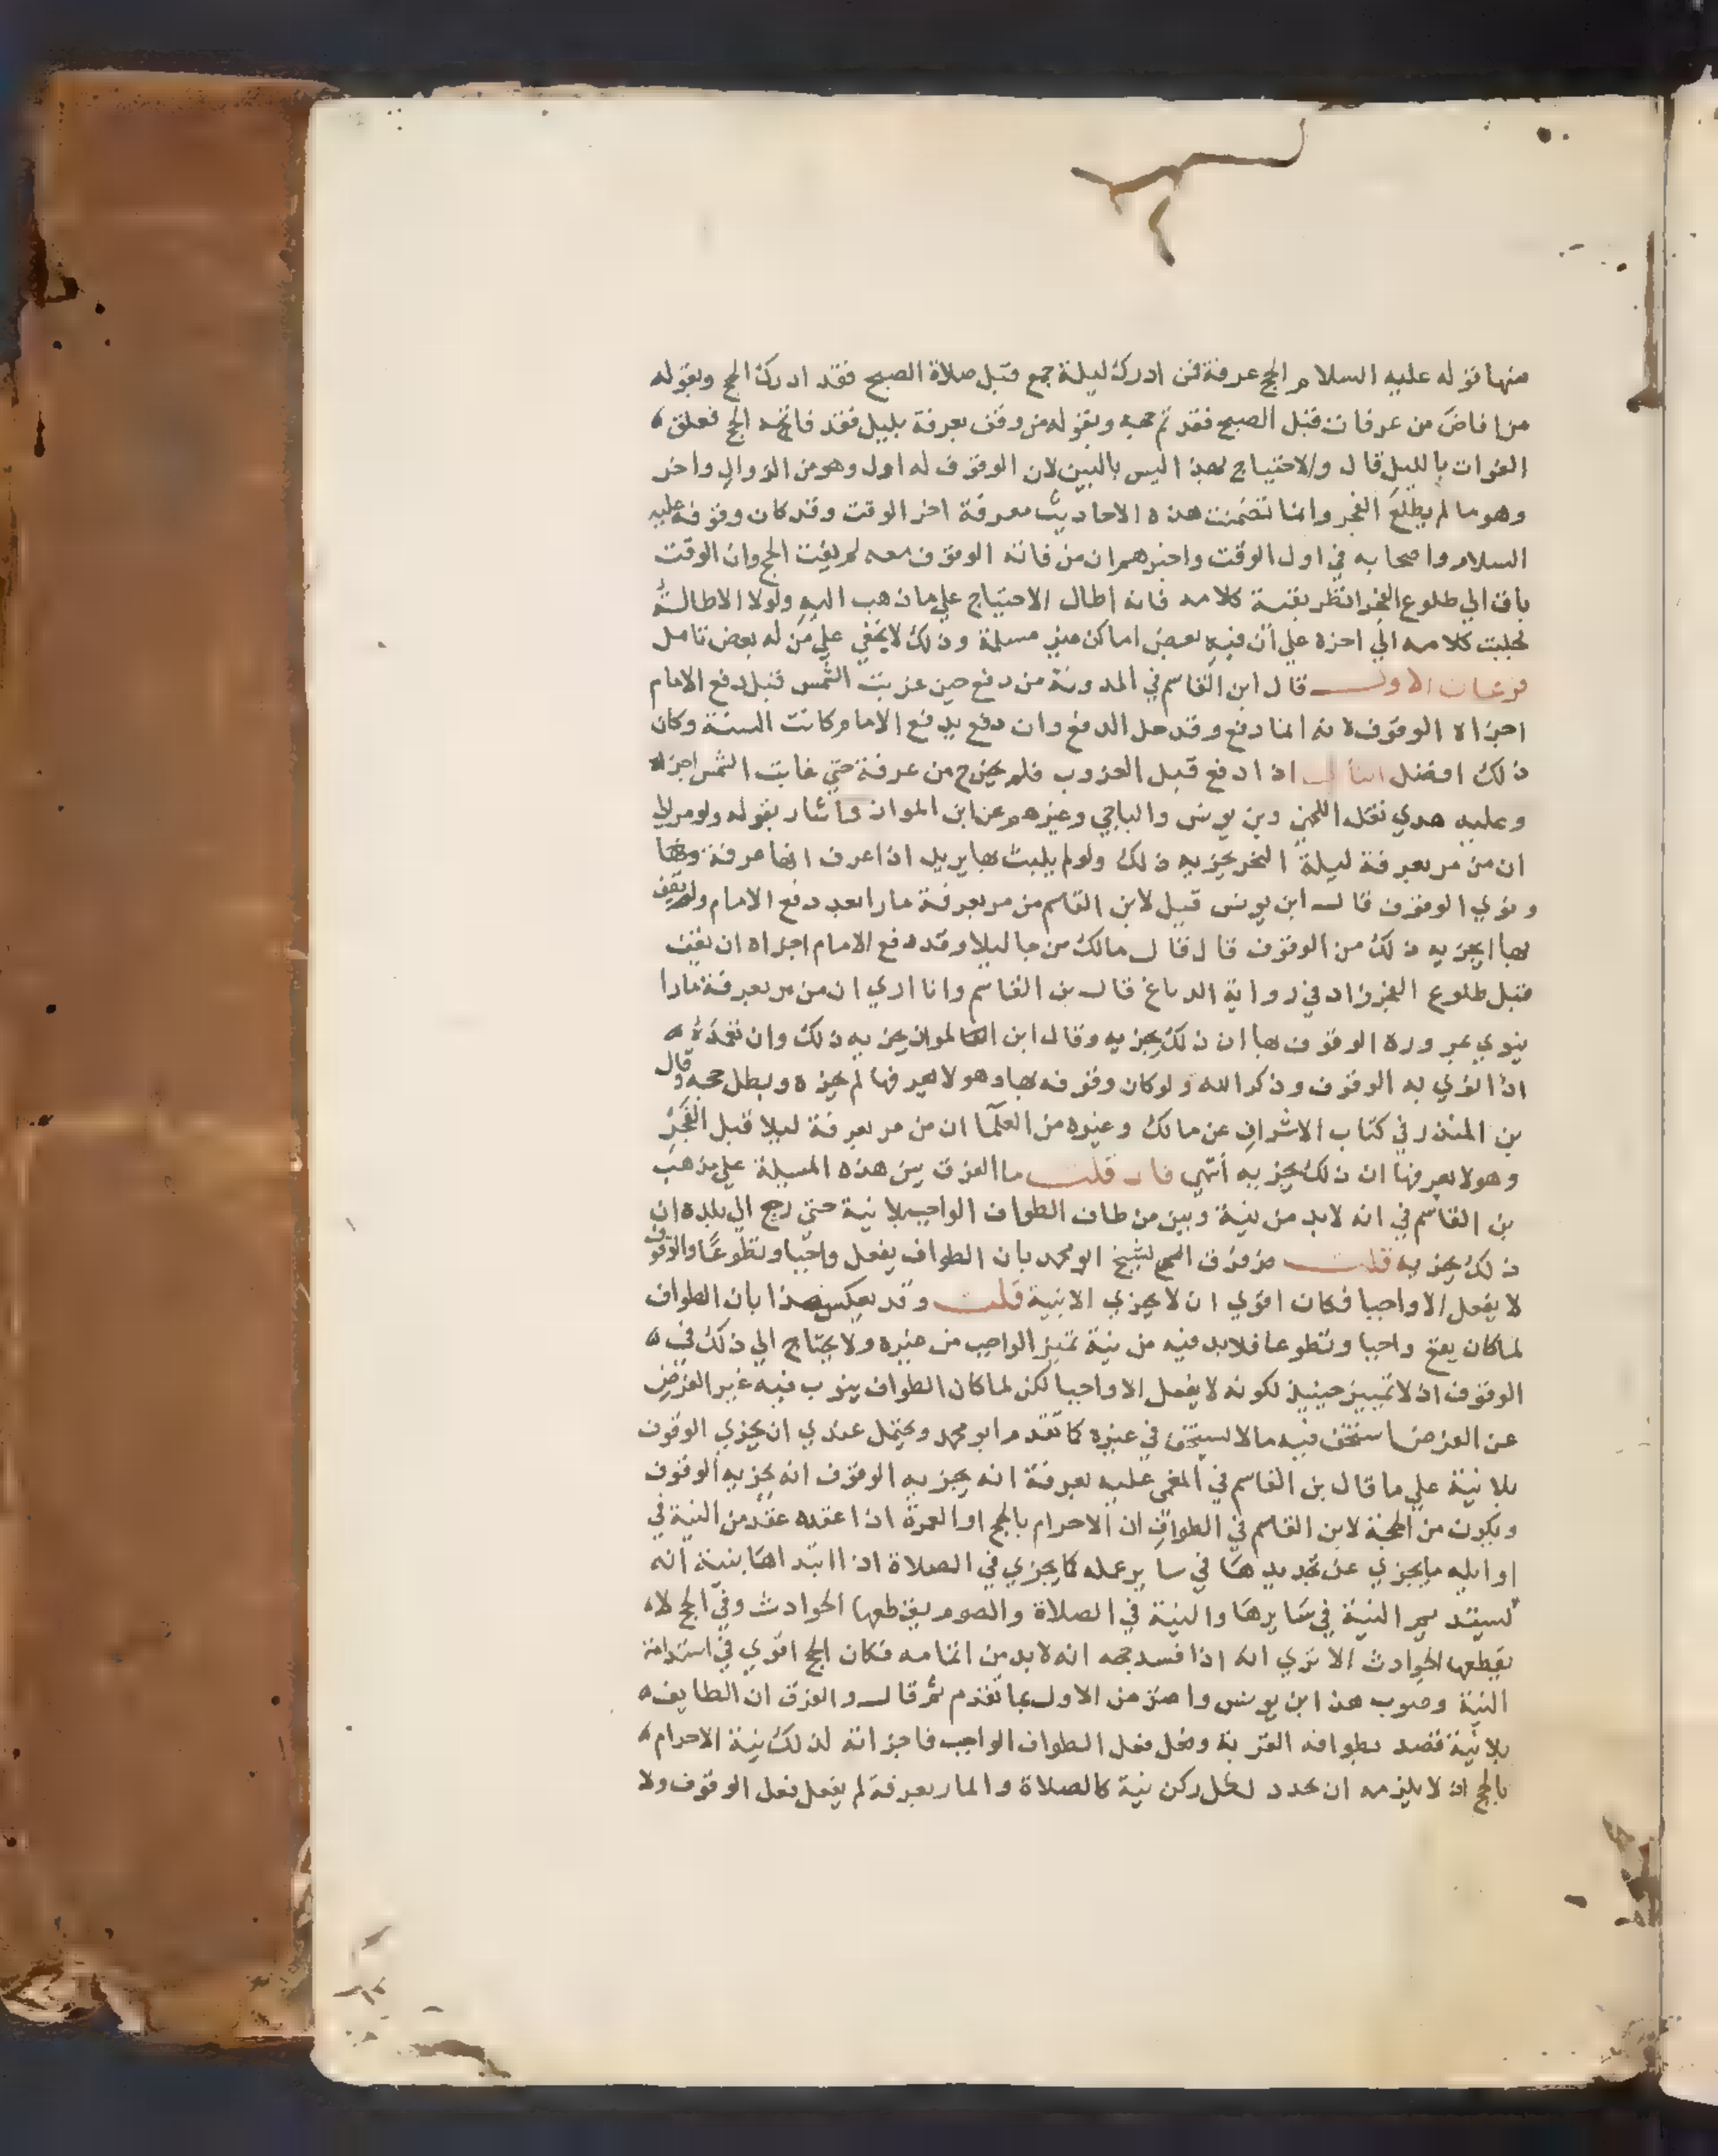 منها قوله عليه السلام الحج عرفة فمن ادرك ليلة جمع قبل صلاة الصبح فقد ادرك الحج وبقوله
من افاض من عرفات قبل الصبح فقد تم حجه وبقوله من وقف بعرفة بليل فقد فاته الحج فعلق
الفوات بالليل قال والاحتياج بهذا ليس بالبين لان الوقوف له اول وهو من الزوال واخر
وهو ما لم يطلع الفجر وانما تضمنت هذه الاحاديث معرفة اخر الوقت وقد كان وقوفه عليه
السلام واصحابه في اول الوقت واخبرهم ان من فاته الوقوف معه لم يفت الحج وان الوقت
باق الي طلوع الفجر انظر بقية كلامه فانه اطال الاحتياج علي ما ذهب اليه ولولا الاطالة
لجلبت كلامه الي اخره علي أن فيه بعض اماكن غير مسلمة وذلك لا يخفي علي من له بعض تامل
فرعان الاول قال ابن القاسم في المدونة من دفع حين غربت الشمس قبل دفع الامام
اجزاه الوقوف لانه انما دفع وقد حل الدفع وان دفع بدفع الامام كانت السنة وكان
ذلك افضل الثاني اذا دفع قبل الغروب فلم يخرج من عرفة حتي غابت الشمس اجزاه
وعليه هدي نقله اللخمي وبن يونس والباجي وغيرهم عن ابن المواز واشار بقوله ولو مر الي
ان من مر بعرفة ليلة النحر يجزيه ذلك ولو لم يلبث بها يريد اذا عرف انها عرفة
ونوي الوقوف قال ابن يونس قيل لابن القاسم من مر بعرفة مارا بعد دفع الامام ولم يقف
بها ايجزيه ذلك من الوقوف قال قال مالك من جا ليلا وقد دفع الامام اجزاه ان يقف
قبل طلوع الفجر زاد في رواية الدباغ قال بن القاسم وانا اري ان من مر بعرفة مارا
ينوي بمروره الوقوف بها ان ذلك يجزيه وقال ابن المواز يجزيه ذلك وان
اذا نوي به الوقوف وذكر الله ولو كان وقوفه بها وهو لا يعرفها لم يجزه وبطل حجه وقال
بن المنذر في كتاب الاشراف عن مالك وغيره من العلما ان من مر بعرفة ليلا قبل الفجر
وهو لا يعرفها ان ذلك يجزيه انتهي فان قلت ما الفرق بين هذه المسيلة علي مذهب
بن القاسم في انه لابد من نية وبين من طاف الطواف الواجب بلا نية حتي رجع الي بلده ان
ذلك يجزيه قلت الشيخ ابو محمد بان الطواف يفعل واجبا وتطوعا والوقوف
لا يفعل الا واجبا فكان اقوي ان لا يجزي الا بنية قلت وقد يعكس هذا بان الطواف
لما كان يقع واجبا وتطوعا فلابد فيه من نية تميز الواجب من غيره ولا يحتاج الي ذلك في
الوقوف اذ لا تمييز حينيذ لكونه لا يفعل الا واجبا لكن لما كان الطواف ينوب فيه غير الفرض
عن الفرض استخف فيه ما لا يستخف في غيره كما تقدم ابو محمد ويحتمل عندي ان يجزي الوقوف
بلا نية علي ما قال بن القاسم في المغمي عليه بعرفة انه يجزيه الوقوف انه يجزيه الوقوف
ويكون من الحجة لابن القاسم في الطواف ان الاحرام بالحج او العمرة اذا عقده عقد من النية في
اوايله ما يجزي عن تجديدها في ساير عمله كما يجزي في الصلاة اذا ابتداها بنية انه
يستديم النية في سايرها والنية في الصلاة والصوم يقطعها الحوادث وفي الحج لا
يقطعها الحوادث الا تري انه اذا فسد حجه انه لابد من اتمامه فكان الحج اقوي في استدامة
النية وصوب هذا ابن يونس واعتذر من الاول بما تقدم ثم قال والفرق ان الطايف
بلا نية قصد بطوافه القربة وفعل فعل الطواف الواجب فاجزاته لذلك نية الاحرام
بالحج اذ لا يلزمه ان يحدد لكل ركن نية كالصلاة والمار بعرفة لم يفعل فعل الوقوف ولا